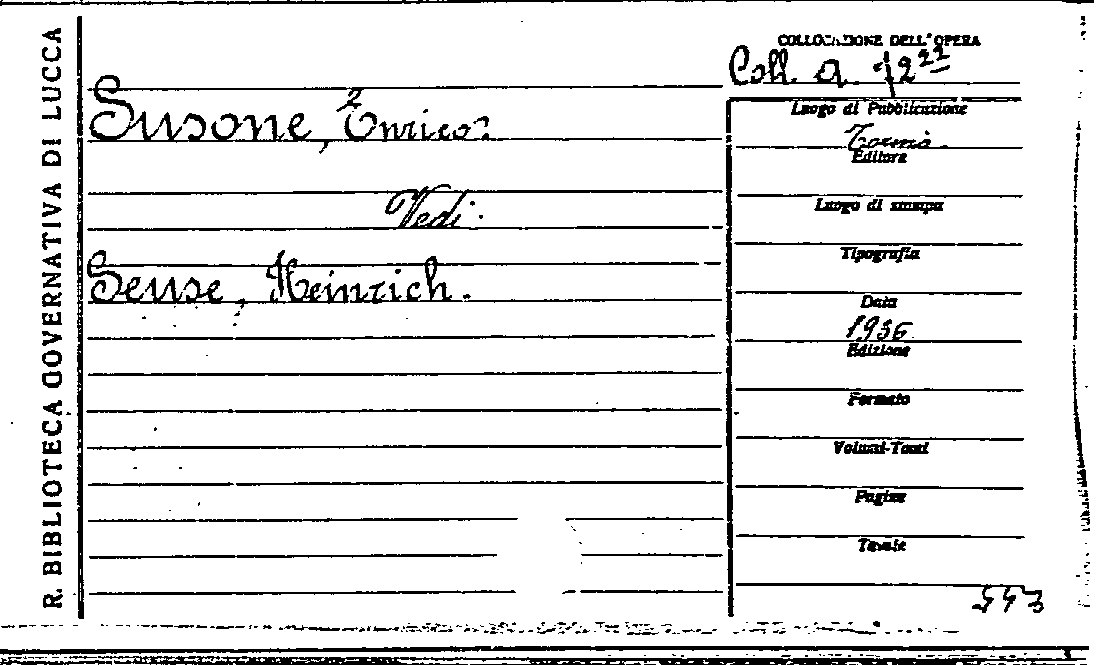 R. BIBLIOTECA GOVERNATIVA DI LUCCA
Susone, Enrico.
Vedi.
Seuse, Heinrich.
COLLOCAZIONE DELL'OPERA
Coll. a. 12²²
Luogo di Pubblicazione
Editore
Luogo di stampa
Tipografia
Data
1936
Edizione
Formato
Volumi-Tomi
Pagine
Tavole